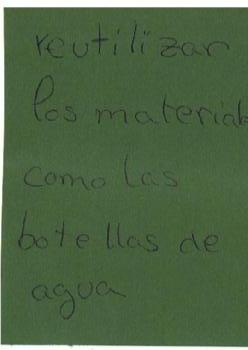 reutilizar
los material
como las
botellas de
agua